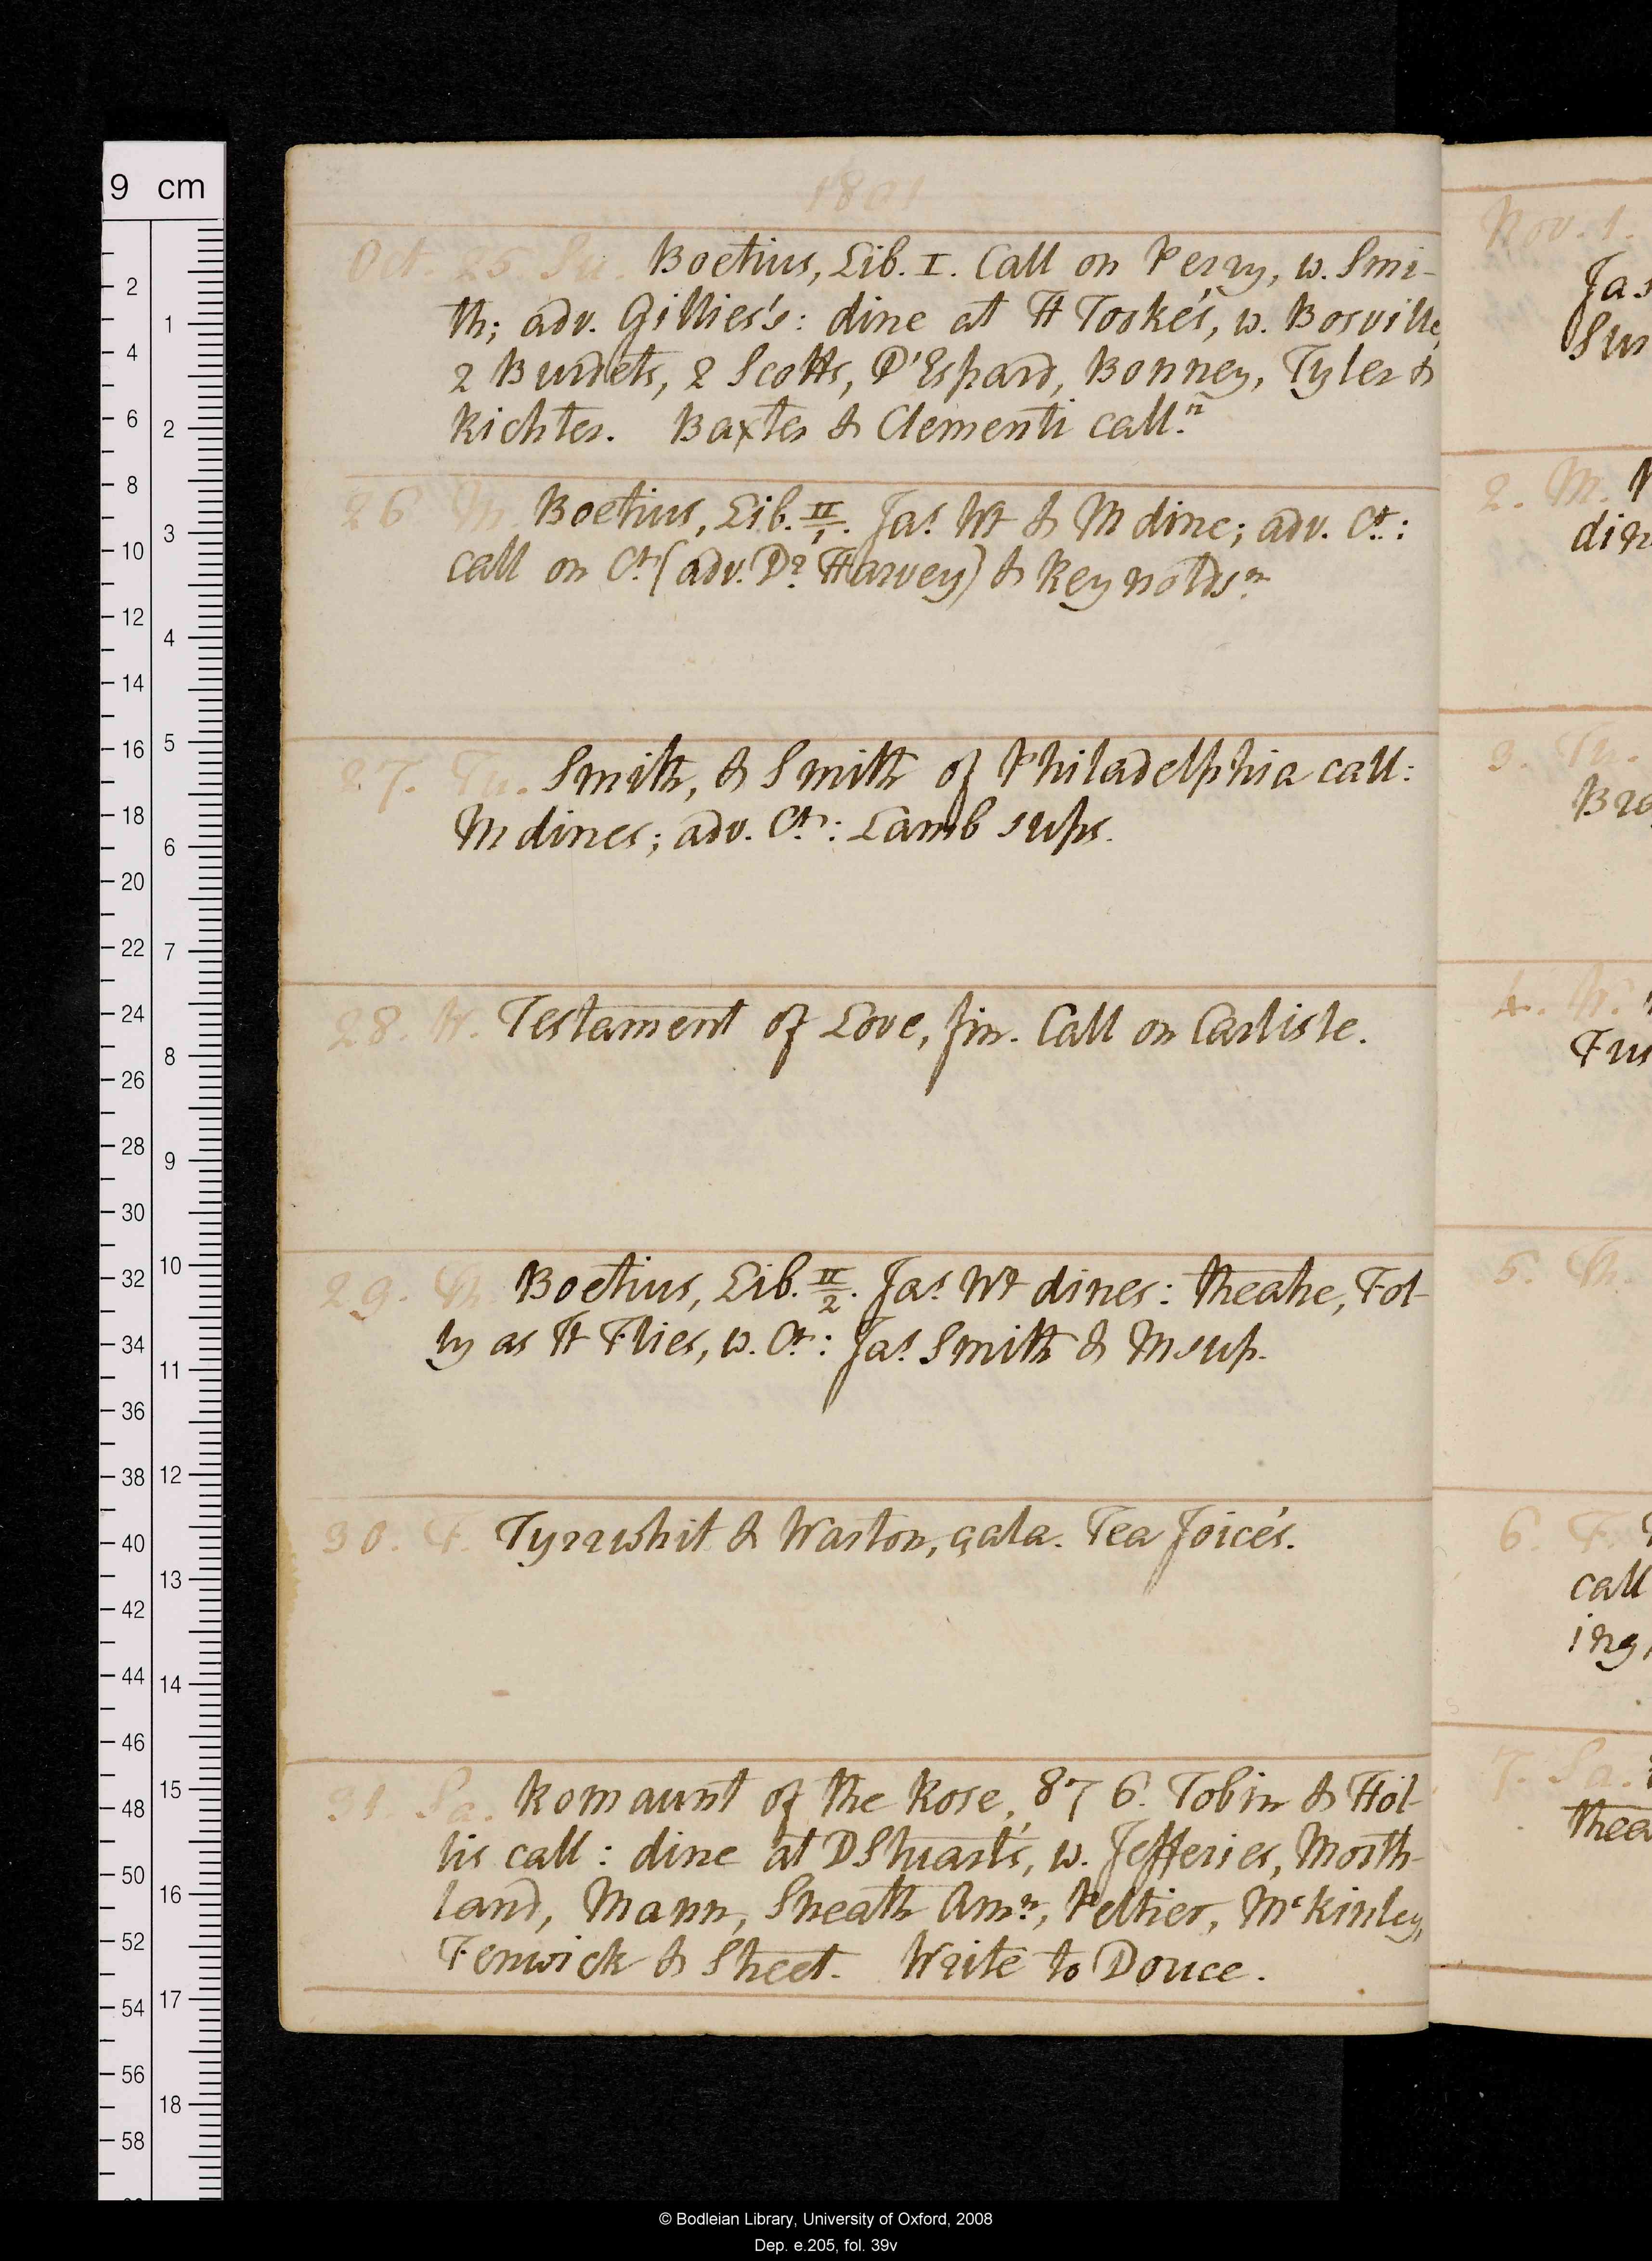 1801
Oct. 25. Su. Boetius, Lib. I. Call on Perry, w. Smi-
th; adv. Gillies's: dine at H Tooke's, w. Bosville,
2 Burdets, 2 Scotts, D'Espard, Bonney, Tyler &
Richter. Baxter & Clementi call.n
26 M. Boetius, Lib. II/1. Jas. Wt & M dine; adv. Ct.:
call on Ct. (adv. Dr. Harvey) & Reynolds.n
27. Tu. Smith, & Smith of Philadelphia call:
M dines; adv. Ct.: Lamb sups.
28. W. Testament of Love, fin. Call on Carlisle.
29. Th. Boetius, Lib. II/2. Jas. Wt dines: theatre, Fol-
ly as It Flies, w. Ct.: Jas. Smith & M sup.
30. F. Tyrrwhit & Warton, çala. Tea Joice's.
31 Sa. Romaunt of the Rose, 876. Tobin & Hol-
lis call: dine at D Stuart's, w. Jefferies, North-
land, Mann, Sneath Amn., Peltier, McKinley,
Fenwick & Street. Write to Douce.
Nov. 1.
Jas
2. M.
3. Tu.
4. W.
5. Th.
6. F.
call
ing,
7. Sa.
9 cm
2 4 6 8 10 12 14 16 18 20 22 24 26 28 30 32 34 36 38 40 42 44 46 48 50 52 54 56 58
1 2 3 4 5 6 7 8 9 10 11 12 13 14 15 16 17 18
© Bodleian Library, University of Oxford, 2008
Dep. e.205, fol. 39v